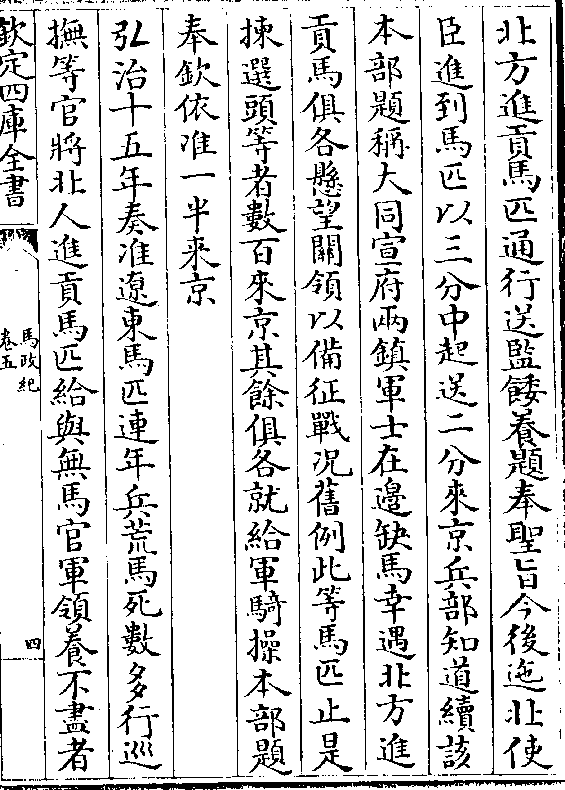 北方進貢馬匹通行送監餧養題奉聖旨今後迤北使
臣進到馬匹以三分中起送二分來京兵部知道續該
本部題稱大同宣府兩鎮軍士在邊缺馬幸遇北方進
貢馬俱各懸望關領以備征戰况舊例此等馬匹止是
揀選頭等者數百來京其餘俱各就給軍騎操本部題
奉欽依准一半来京
弘治十五年奏准遼東馬匹連年兵荒馬死數多行巡
撫等官將北人進貢馬匹給與無馬官軍領養不盡者
欽定四庫全書
馬政紀
卷五
四